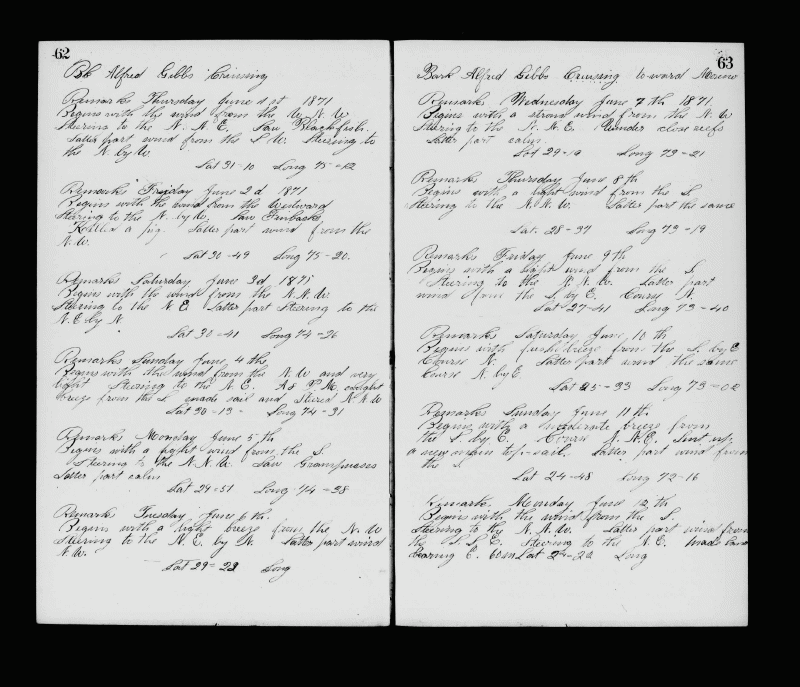 62
Bk Alfred Gibbs Cruising
Remarks Thursday June 1st 1871
Begins with the wind from the W.N.W
Steering to the N.N.E. Saw Blackfish.
Latter part wind from the S.W. Steering to
the N. by W
Lat 31-10 Long 75-12
Remarks Friday June 2d 1871
Begins with the wind from the Westward
Steering to the N. by W. Saw Finbacks
Killed a pig. Latter part wind from the
N.W.
Lat 30-49 Long 75-20.
Remarks Saturday June 3d 1871
Begins with the wind from the N.N.W.
Steering to the N E Latter part Steering to the
N.E by N.
Lat 30-41 Long 74-26
Remarks Sunday June, 4th
Begins with the wind from the N.W and very
light Steering to the N.E. At P.M. caught
breeze from the S made sail and Steered N.N.W
Lat 30-13- Long 74-31
Remarks Monday June 5th
Begins with a light wind from the S.
Steering to the N.N.W. Saw Grampuses
Latter part calm
Lat 29-51 Long 74-38
Remarks Tuesday June 6th.
Begins with a light breeze from the N.W
Steering to the N.E. by N. Latter part wind
N.W.
Lat 29-22 Long
63
Bark Alfred Gibbs Cruising
Remarks Wednesday June 7th 1871
Begins with a strong wind from the N.W
Steering to the N.N.E. Under close reefs
Latter part calm.
Lat 29-19 Long 73-21
Remarks Thursday June 8th
Begins with a light wind from the S
Steering to the N.N.W. Latter part the same
Lat. 28-37 Long 73-19
Remarks Friday June 9th
Begins with a light wind from the S.
Steering to the N.N.W. Latter part
wind from the S. by E. Course N.
Lat 27-41 Long 73-40
Remarks Saturday June 10th
Begins with fresh breeze from the S. by E
Course N. Latter part wind the same
Course N. by E.
Lat 25-33 Long 73-02
Remarks Sunday June 11th.
Begins with a moderate breeze from
the S. by E. Course N.N.E. Sent up
a new main top-sail. Latter part wind from
the S
Lat 24-48 Long 72-16
Remarks Monday June 12th
Begins with the wind from the S.
Steering to the N.N.W. Latter part wind from
the S.S.E. Steering to the N.E. Made Land
bearing E. Lat 24-22 Long